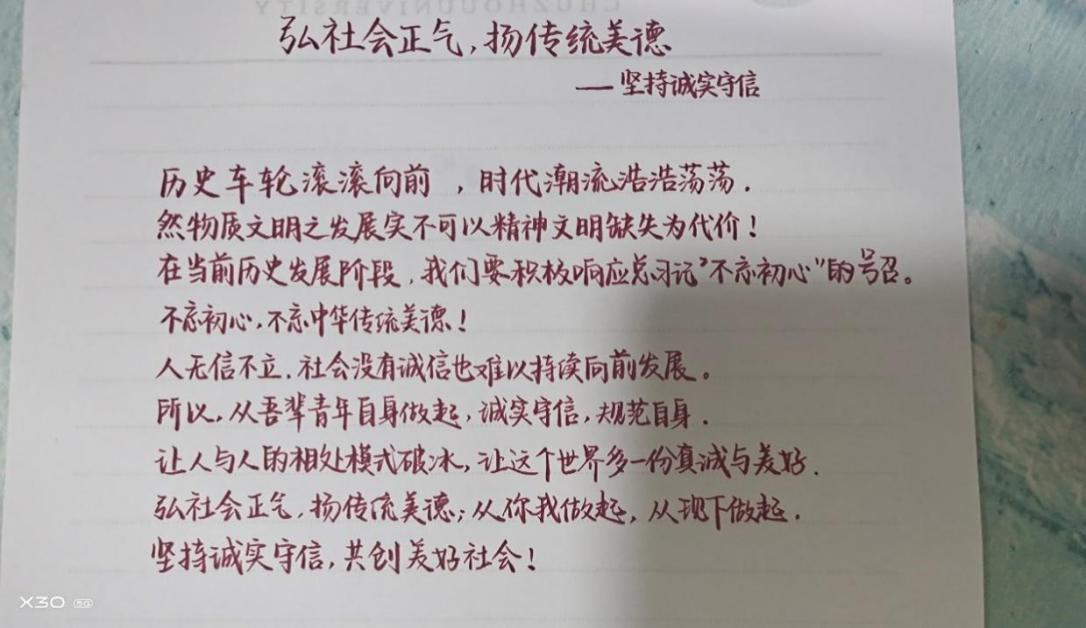 CHUZHOUUNIVERSITY
弘社会正气,扬传统美德
——坚持诚实守信
历史车轮滚滚向前,时代潮流浩浩荡荡.
然物质文明之发展实不可以精神文明缺失为代价!
在当前历史发展阶段,我们要积极响应总习记"不忘初心"的号召。
不忘初心,不忘中华传统美德!
人无信不立.社会没有诚信也难以持续向前发展。
所以,从吾辈青年自身做起,诚实守信,规范自身.
让人与人的相处模式破冰,让这个世界多一份真诚与美好.
弘社会正气,扬传统美德;从你我做起,从现下做起.
坚持诚实守信,共创美好社会!
X30 5G